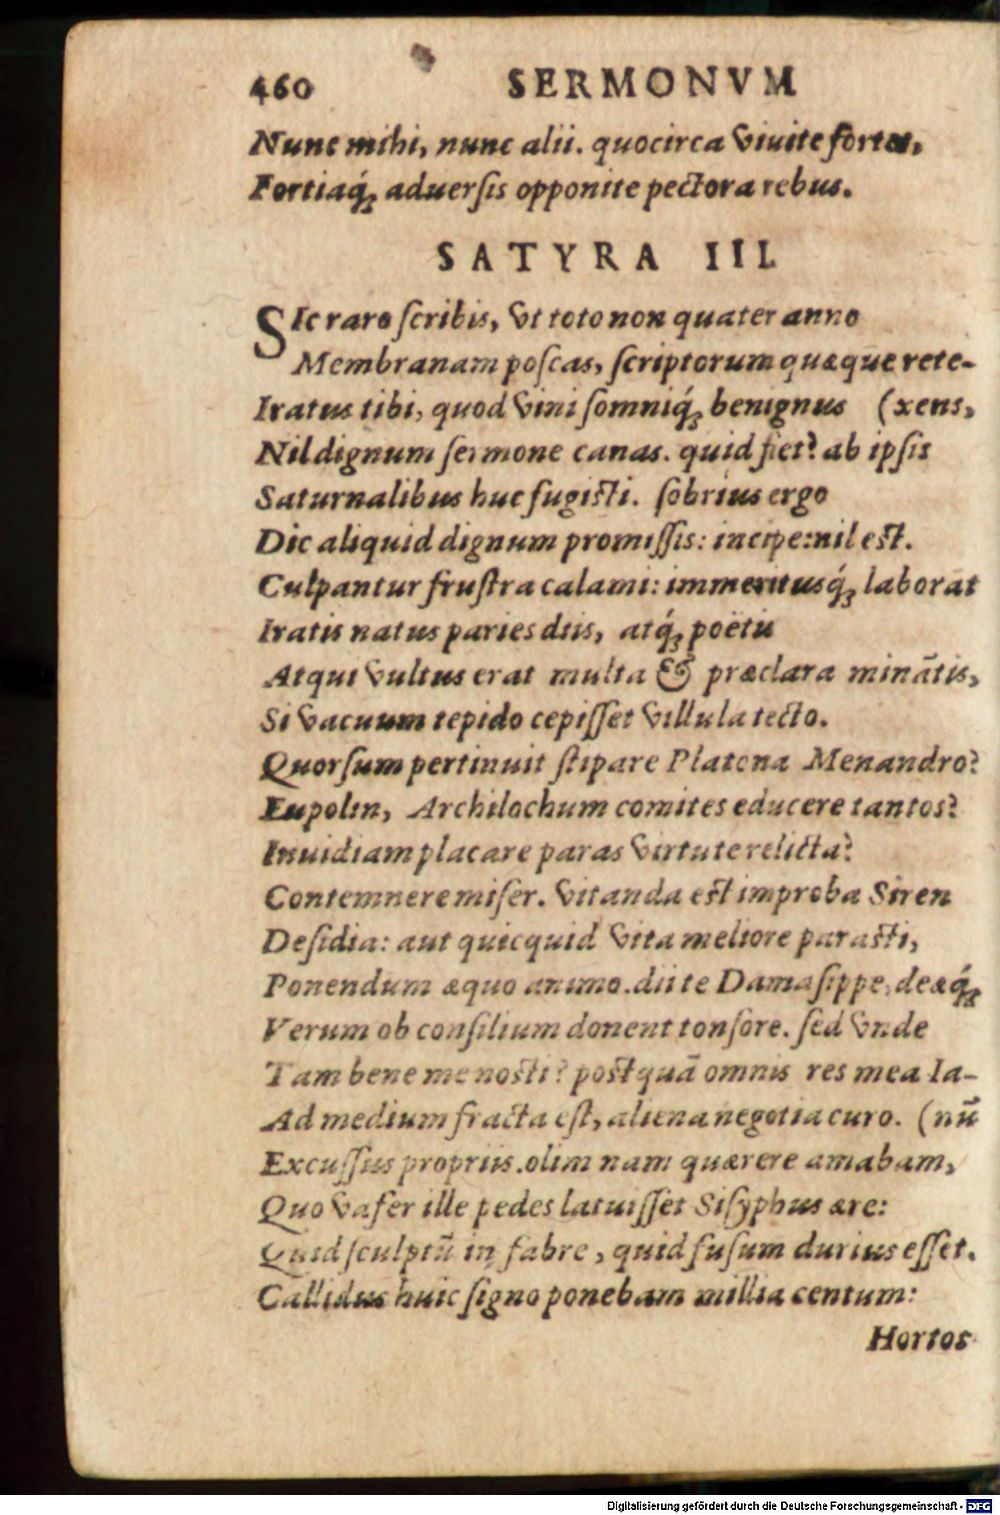 460 SERMONVM
Nunc mihi, nunc alii. quocirca viuite fortes,
Fortiaq́ꝫ aduerſis opponite pectora rebus.
SATYRA III.
SIc raro ſcribis, vt toto non quater anno
Membranam poſcas, ſcriptorum quæque rete-
Iratus tibi, quod vini ſomniq́ꝫ benignus (xens,
Nil dignum ſermone canas. quid fiet? ab ipſis
Saturnalibus huc fugiſti. ſobrius ergo
Dic aliquid dignum promiſſis: incipe: nil eſt.
Culpantur fruſtra calami: immeritusq́ꝫ laborat
Iratis natus paries diis, atq́ꝫ poëtis
Atqui vultus erat multa & præclara minātis,
Si vacuum tepido cepiſſet villula tecto.
Quorſum pertinuit ſtipare Platona Menandro?
Eupolin, Archilochum comites educere tantos?
Inuidiam placare paras virtute relicta?
Contemnere miſer. vitanda eſt improba Siren
Deſidia: aut quicquid vita meliore paraſti,
Ponendum æquo animo. dii te Damaſippe, deæq́ꝫ
Verum ob conſilium donent tonſore. ſed vnde
Tam bene me noſti? poſtquā omnis res mea Ia-
Ad medium fracta eſt, aliena negotia curo. (nū
Excuſſus propriis. olim nam quærere amabam,
Quo vafer ille pedes lauiſſet Siſyphus ære:
Quid ſculptū in fabre, quid fuſum durius eſſet.
Callidus huic ſigno ponebam millia centum:
Hortos
Digitalisierung gefördert durch die Deutsche Forschungsgemeinschaft - DFG